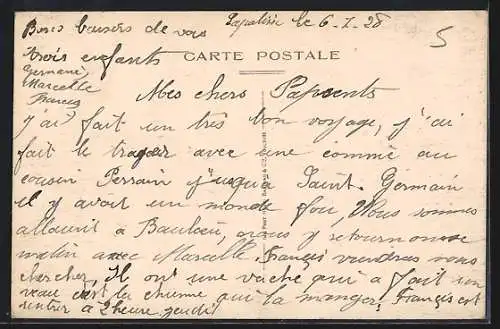 Bons baisers de vos
trois enfants
Germaine
Marcelle
Francis
Lapalisse le 6-1-28
5
CARTE POSTALE
Mes chers Parents
j'ai fait un très bon voyage, j'ai
fait le trajet avec une commie au
cousin Perrain jusqua Saint-Germain
il y avait un monde fou, Vous sommes
a Baulieu, nous y retournons ce
matin avec Marcelle. François viendras nous
chercher, Il ont une vache qui a fait un
veau cest la chienne qui la manger, François est
rentrer a 2 heure jeudi